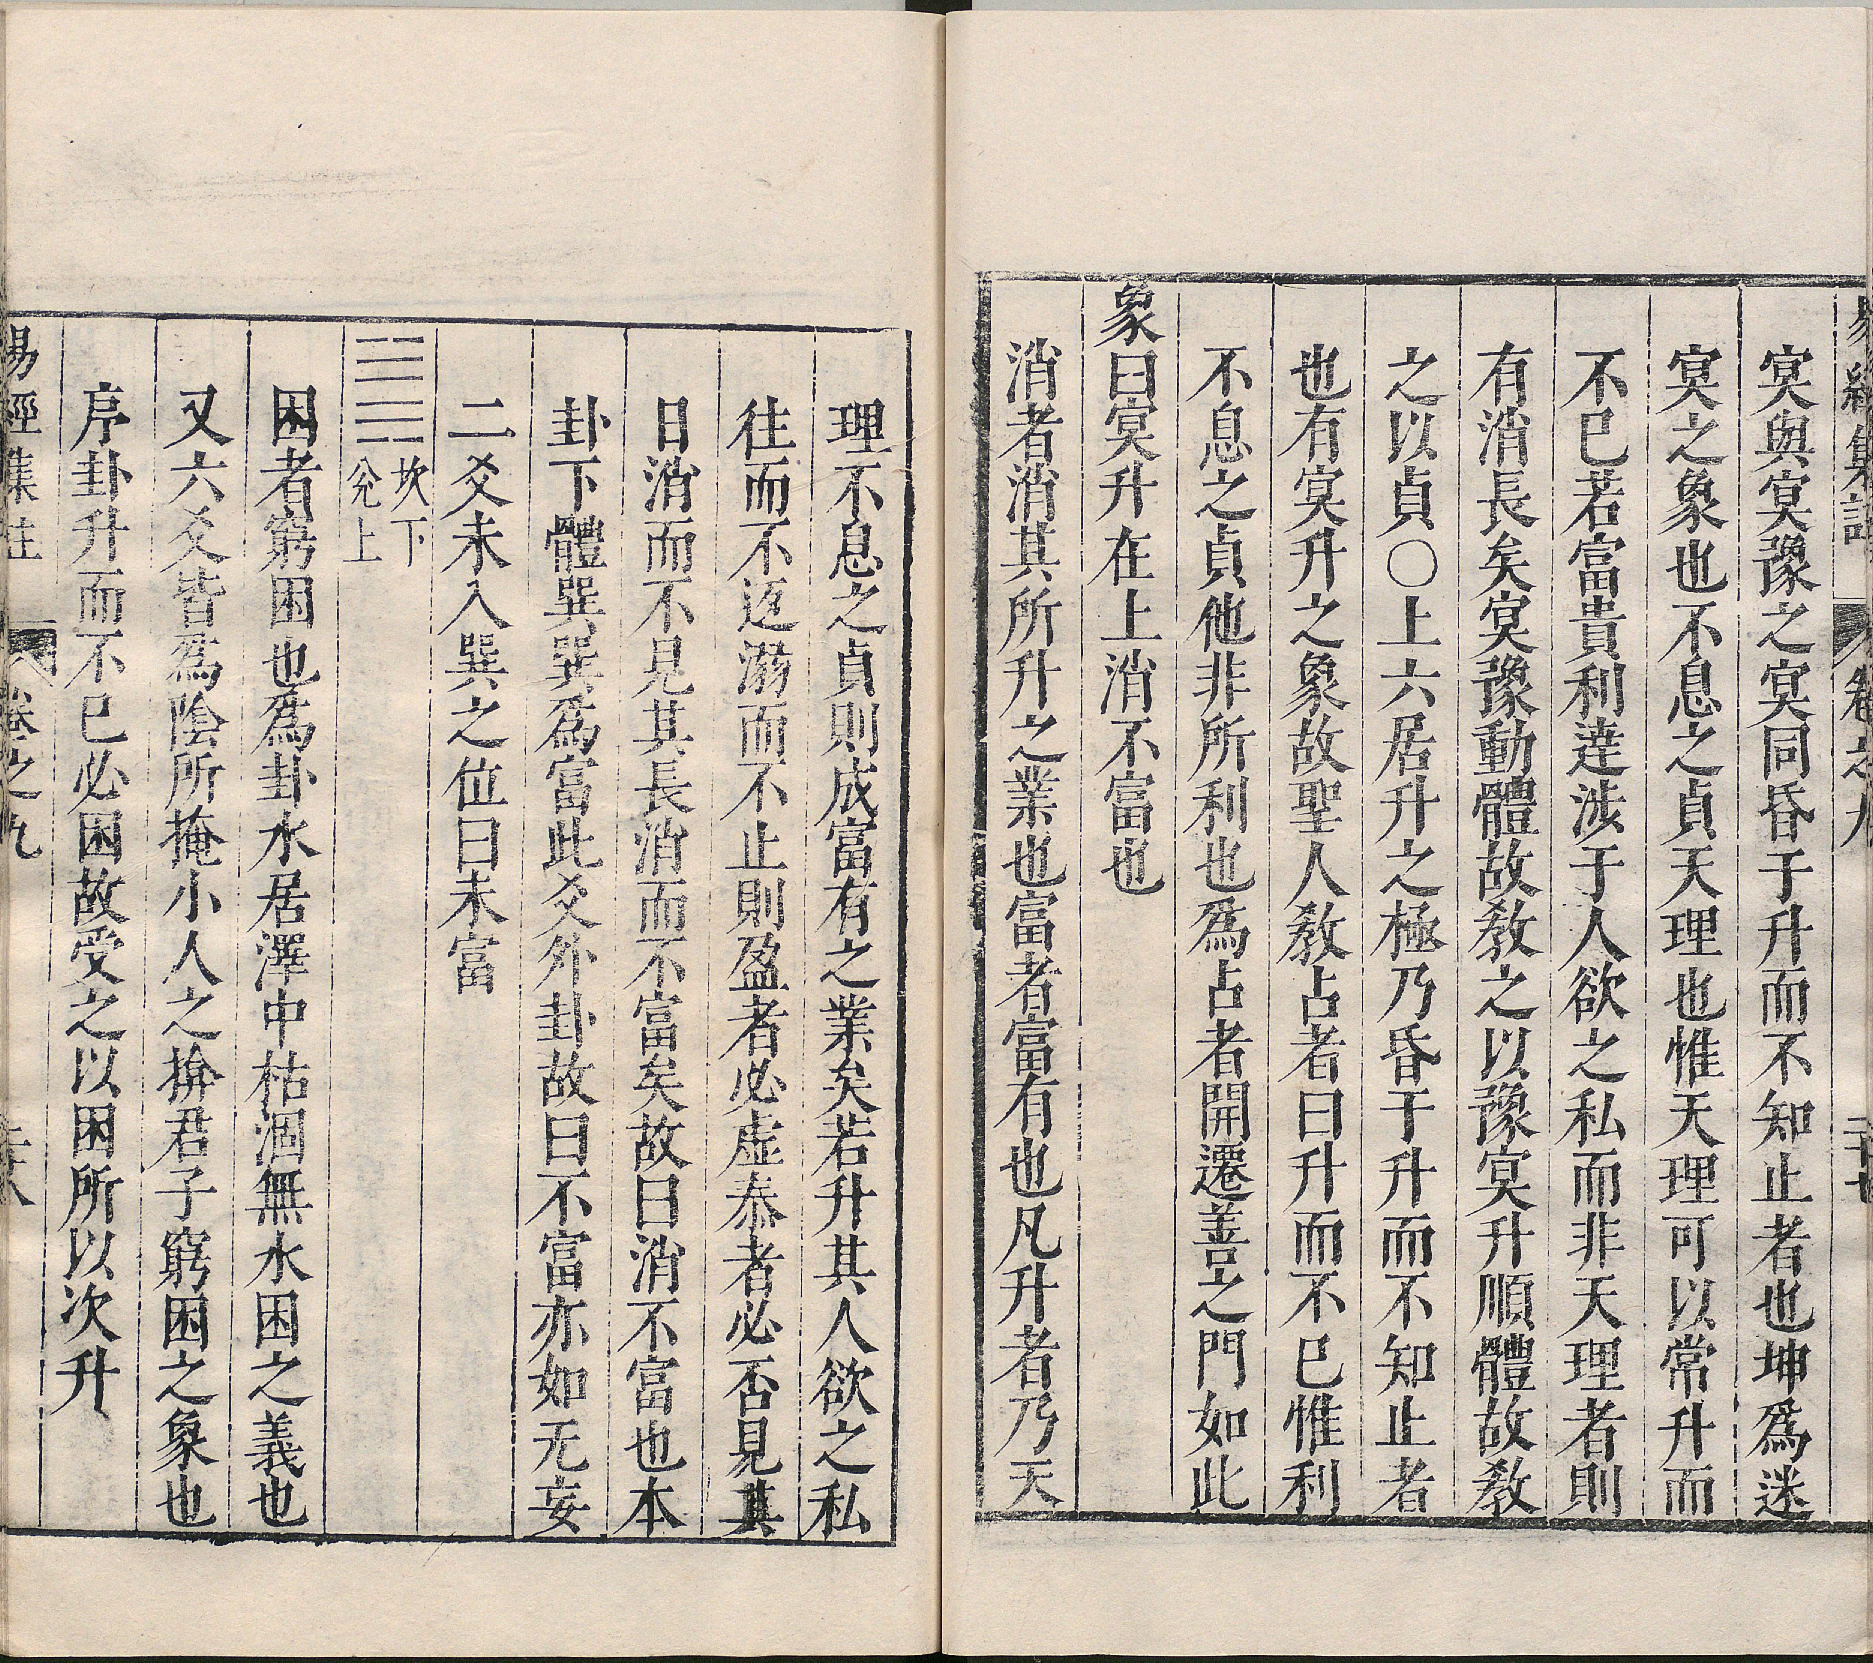 冥與冥豫之冥同昏于升而不知止者也坤爲迷
冥之象也不息之貞天理也惟天理可以常升而
不已若富貴利達涉于人欲之私而非天理者則
有消長矣冥豫動體故教之以豫冥升順體故教
之以貞○上六居升之極乃昏于升而不知止者
也有冥升之象故聖人教占者曰升而不已惟利
不息之貞他非所利也爲占者開遷善之門如此
象曰冥升在上消不富也
消者消其所升之業也富者富有也凡升者乃天
理不息之貞則成富有之業矣若升其人欲之私
往而不返溺而不止則盈者必虛泰者必否見其
日消而不見其長消而不富矣故曰消不富也本
卦下體巽巽爲富此爻外卦故曰不富亦如无妄
二爻未入巽之位曰未富
坎下
兌上
困者窮困也爲卦水居澤中枯涸無水困之義也
又六爻皆爲陰所掩小人之揜君子窮困之象也
序卦升而不已必困故受之以困所以次升
易經集註 卷之九